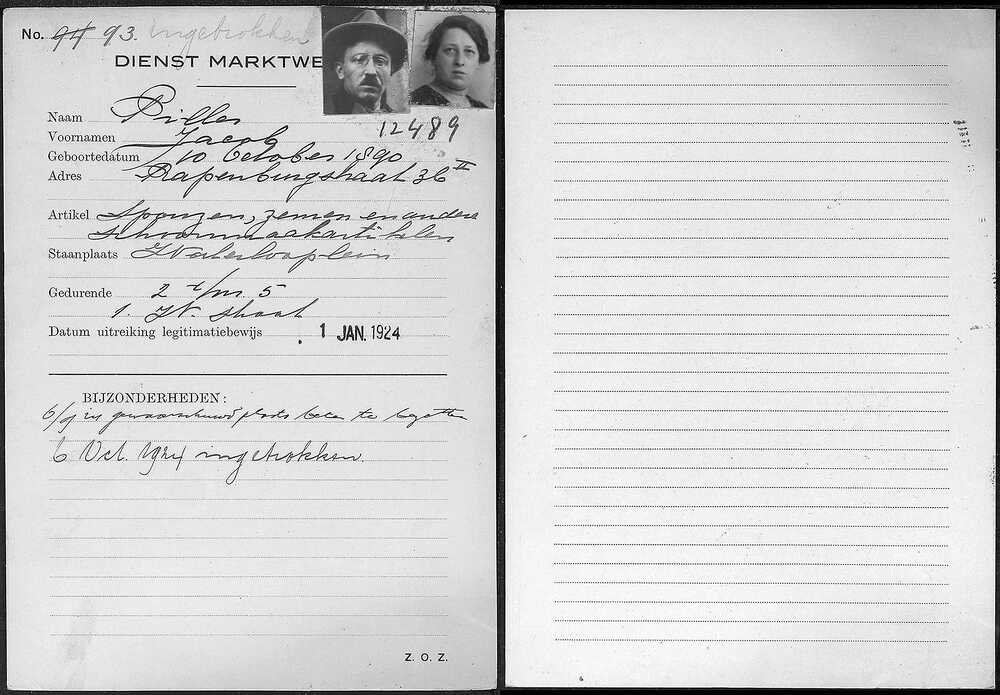 No. 94 93. ingetrokken
DIENST MARKTWE
12489
Naam Piller
Voornamen Jacob
Geboortedatum 10 October 1890
Adres Rapenburgstraat 36 II
Artikel Sponzen, zemen en andere
schoonmaakartikelen
Staanplaats Waterlooplein
Gedurende 2 t/m. 5
1. W. straat
Datum uitreiking legitimatiebewijs 1 JAN. 1924
BIJZONDERHEDEN:
6/9 is gewaarschuwd plaats beter te bezetten
6 Oct. ingetrokken.
Z. O. Z.